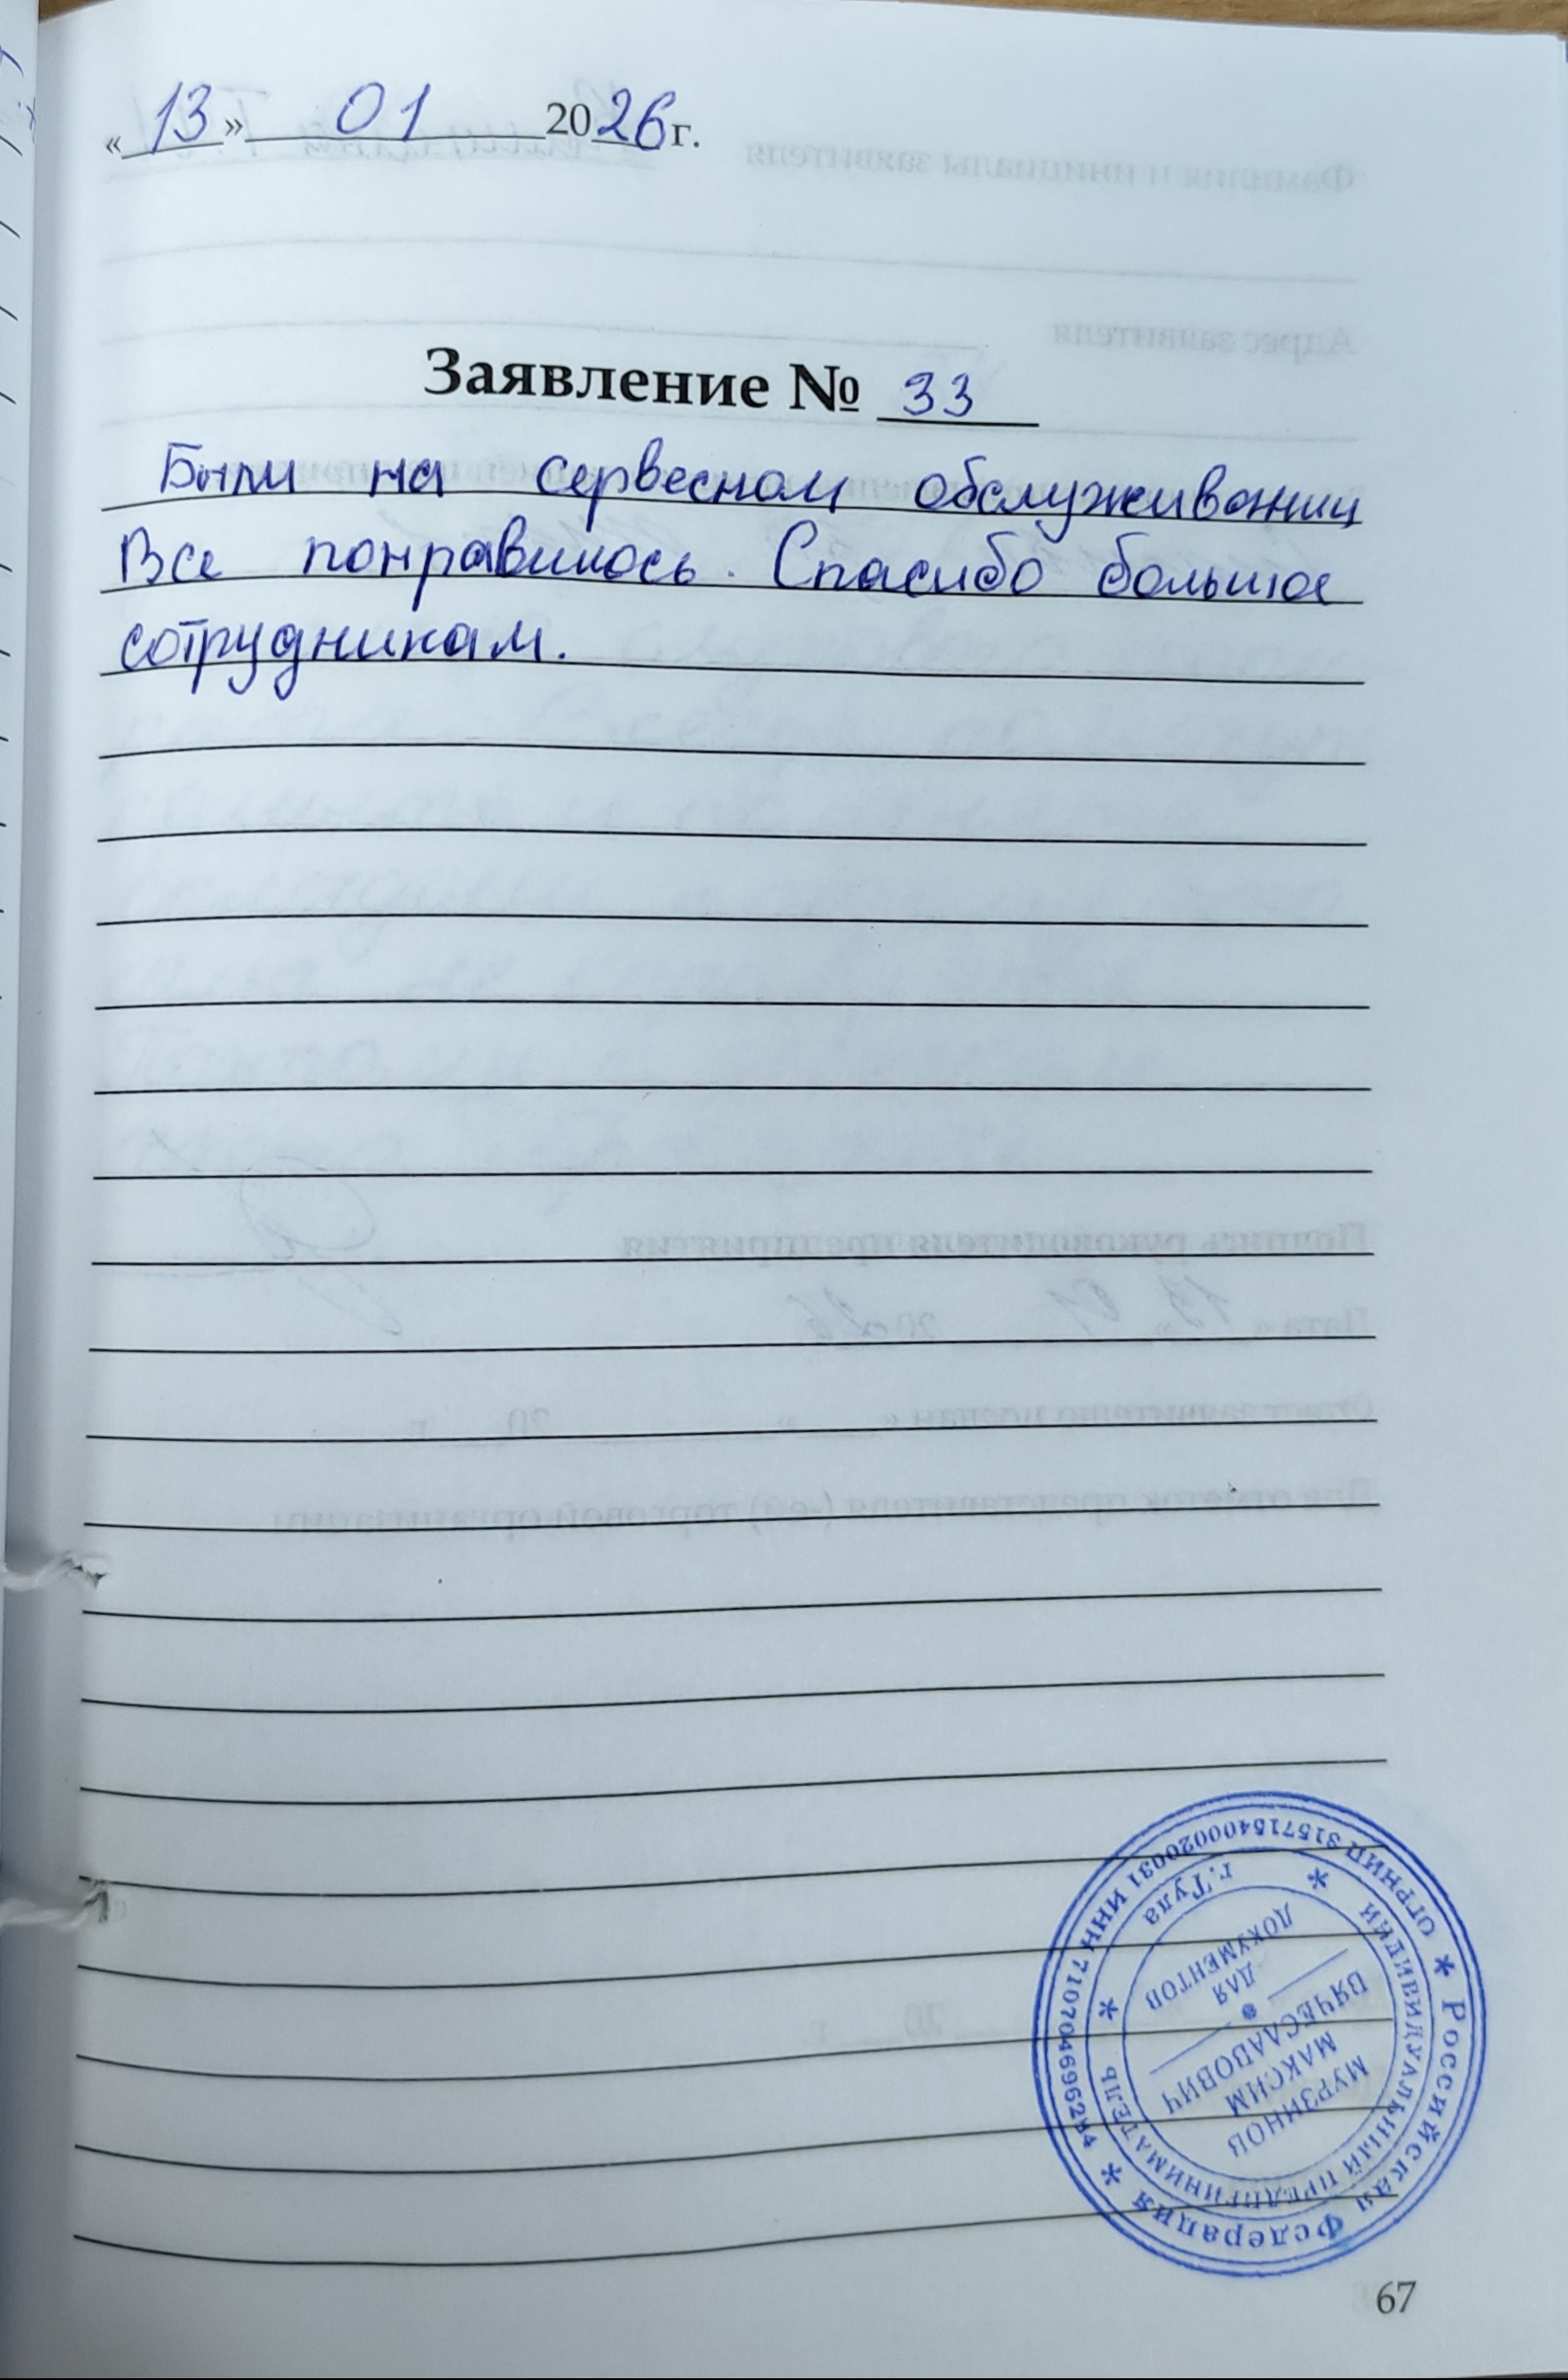 «13» 01 2026 г.
Заявление № 33
Были на сервесном обслуживании
Все понравилось. Спасибо большое
сотрудникам.
* Российская Федерация *
ОГРНИП 315715400020031 ИНН 710704696284
ИНДИВИДУАЛЬНЫЙ ПРЕДПРИНИМАТЕЛЬ
* г. Тула *
МУРЗИНОВ
МАКСИМ
ВЯЧЕСЛАВОВИЧ
ДЛЯ
ДОКУМЕНТОВ
67